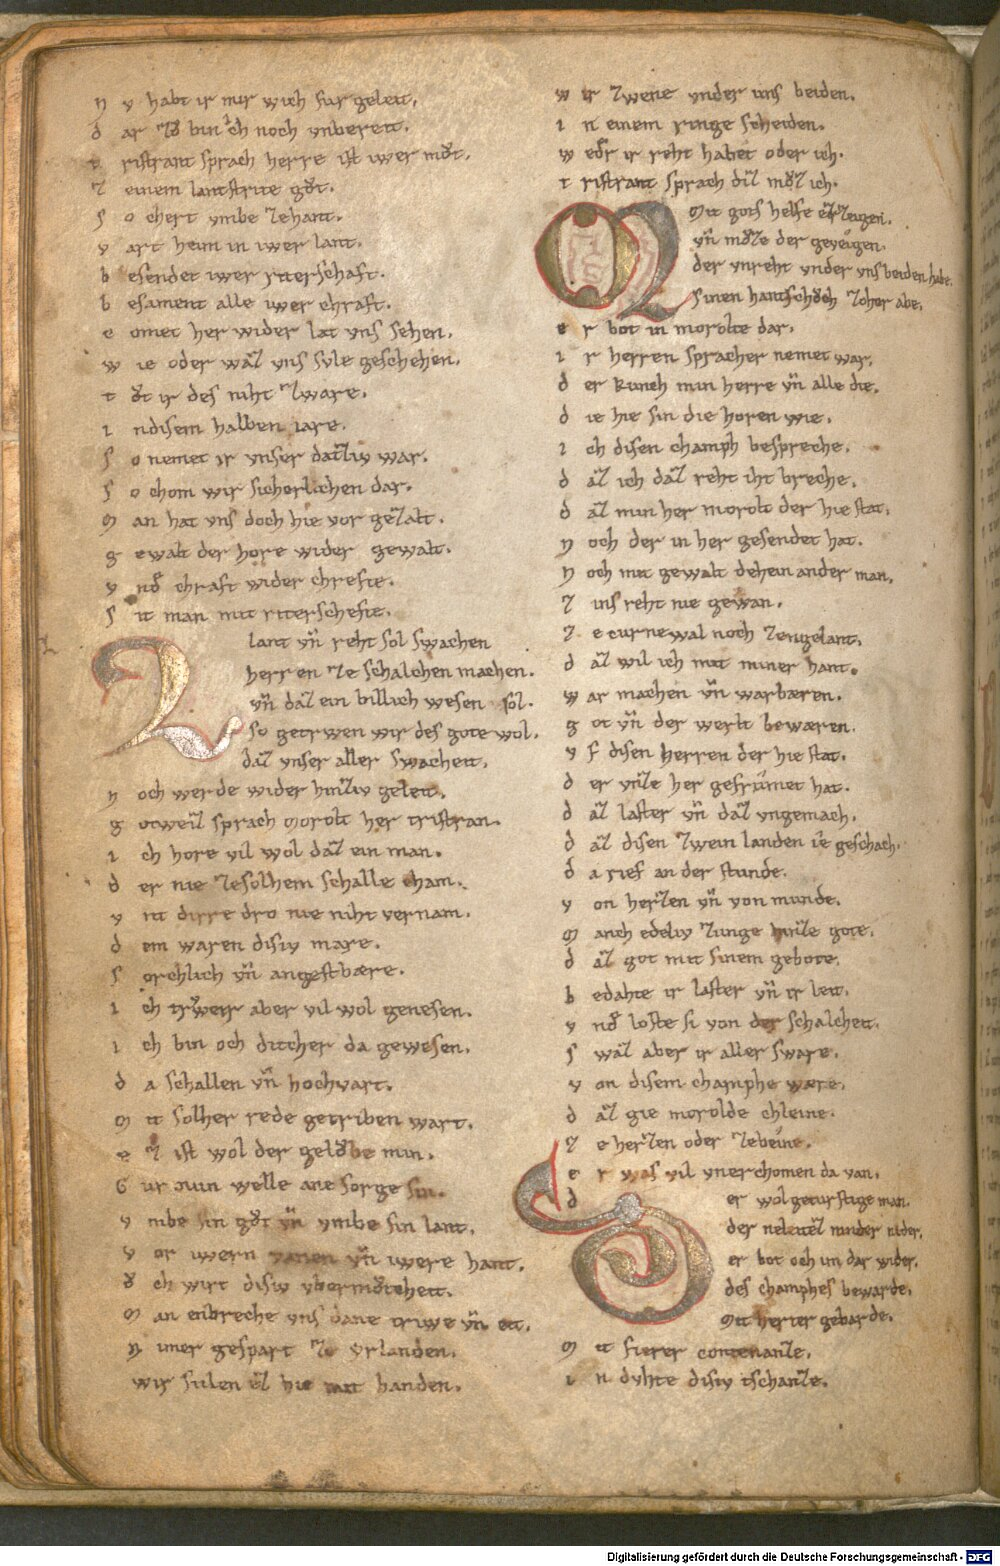 n v habt ir mir wich fur geleit.
d ar zͦ bin ich noch vnbereit.
t ristrant sprach herre ist iwer mͦt.
z einem lantstrite gͦt.
s o chert vmbe zehant.
v art heim in iwer lant.
b esendet iwer riterschaft.
b esament alle iwer chraft.
c omet her wider lat vns sehen.
w ie oder waz vns svle geschehen.
t ͦt ir des niht zware.
i ndisem halben iare.
s o nemet ir vnser datziv war.
s o chom wir sicherlichen dar.
m an hat vns doch hie vor gezalt.
g ewalt der hore wider gewalt.
v nd chraft wider chrefte.
s it man mit riterschefte.
lant vn̄ reht sol swachen
herren ze schalchen machen.
vn̄ daz ein billich wesen sol.
so getrwen wir des gote wol.
daz vnser aller swacheit.
n och werde wider hinziv geleit.
g otweiz sprach morolt her tristran.
i ch hore vil wol daz ein man.
d er nie zesolhem schalle cham.
v nt dirre dro nie niht vernam.
d em waren disiv mare.
s orchlich vn̄ angestbære.
i ch trweir aber vil wol genesen.
i ch bin och diccher da gewesen.
d a schallen vn̄ hochvart.
m it solher rede getriben wart.
e z ist wol der gelͦbe min.
G urmun welle ane sorge sin.
v mbe sin gͦt vn̄ vmbe sin lant.
v or iwern vanen vn̄ iwere hant.
ͦ ch wirt disiv vbermͦtcheit.
m an enbreche vns dane triwe vn̄ eit.
n imer gespart ze Yrlanden.
wir sulen ez hie mit handen.
w ir zwene vnder vns beiden.
i n einem ringe scheiden.
w edͦ ir reht habet oder ich.
t ristrant sprach diz mͦz ich.
Mit gots helfe erzeugen.
vn̄ mͦze der geveigen.
der vnreht vnder vns beiden habe.
sinen hantschͦch zoher abe.
e r bot in morolte dar.
i r herren spracher nemet war.
d er kunch min herre vn̄ alle die.
d ie hie sin die horen wie.
i ch disen champh bespreche.
d az ich daz reht iht breche.
d az min her morolt der hie stat.
n och der in her gesendet hat.
n och mit gewalt dehein ander man.
z ins reht nie gewan.
z e curnewal noch zengelant.
d az wil ich mit miner hant.
w ar machen vn̄ warbæren.
g ot vn̄ der werlt bewæren.
v f disen herren der hie stat.
d er vnze her gefrümet hat.
d az laster vn̄ daz vngemach.
d az disen zwein landen ie geschach.
d a rief an der stunde.
v on herzen vn̄ von munde.
m anch edeliv zunge hinze gote.
d az got mit sinem gebote.
b edahte ir laster vn̄ ir leit.
v nd loste si von der schalcheit.
s waz aber ir aller sware.
v on disem champhe wære.
d az gie morolde chleine.
z e herzen oder zebeine.
e r was vil vnerchomen da van.
d er wolgeturstige man.
der neleutez ninder nider.
er bot och im dar wider.
des champhes bewarde.
Mit herter gebarde.
m it fierer contenanze.
i n dvhte disiv tschanze.